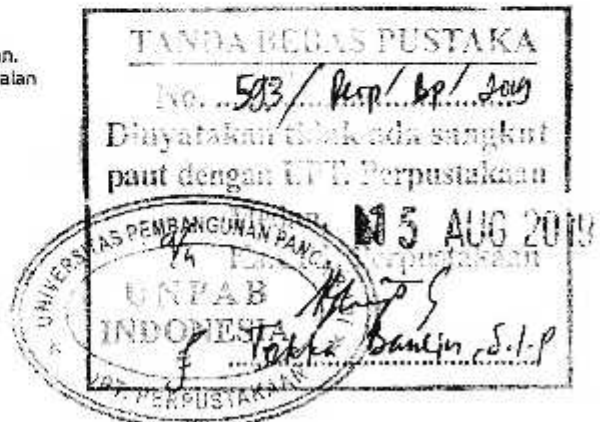 an.
alan
TANDA BEBAS PUSTAKA
No. 593/ Perp/ BP/ 2019
Dinyatakan tidak ada sangkut
paut dengan UPT. Perpustakaan
15 AUG 2019
Perpustakaan
UNIVERSITAS PEMBANGUNAN PANCA
UNPAB
INDONESIA
UPT. PERPUSTAKAAN
S.I.P